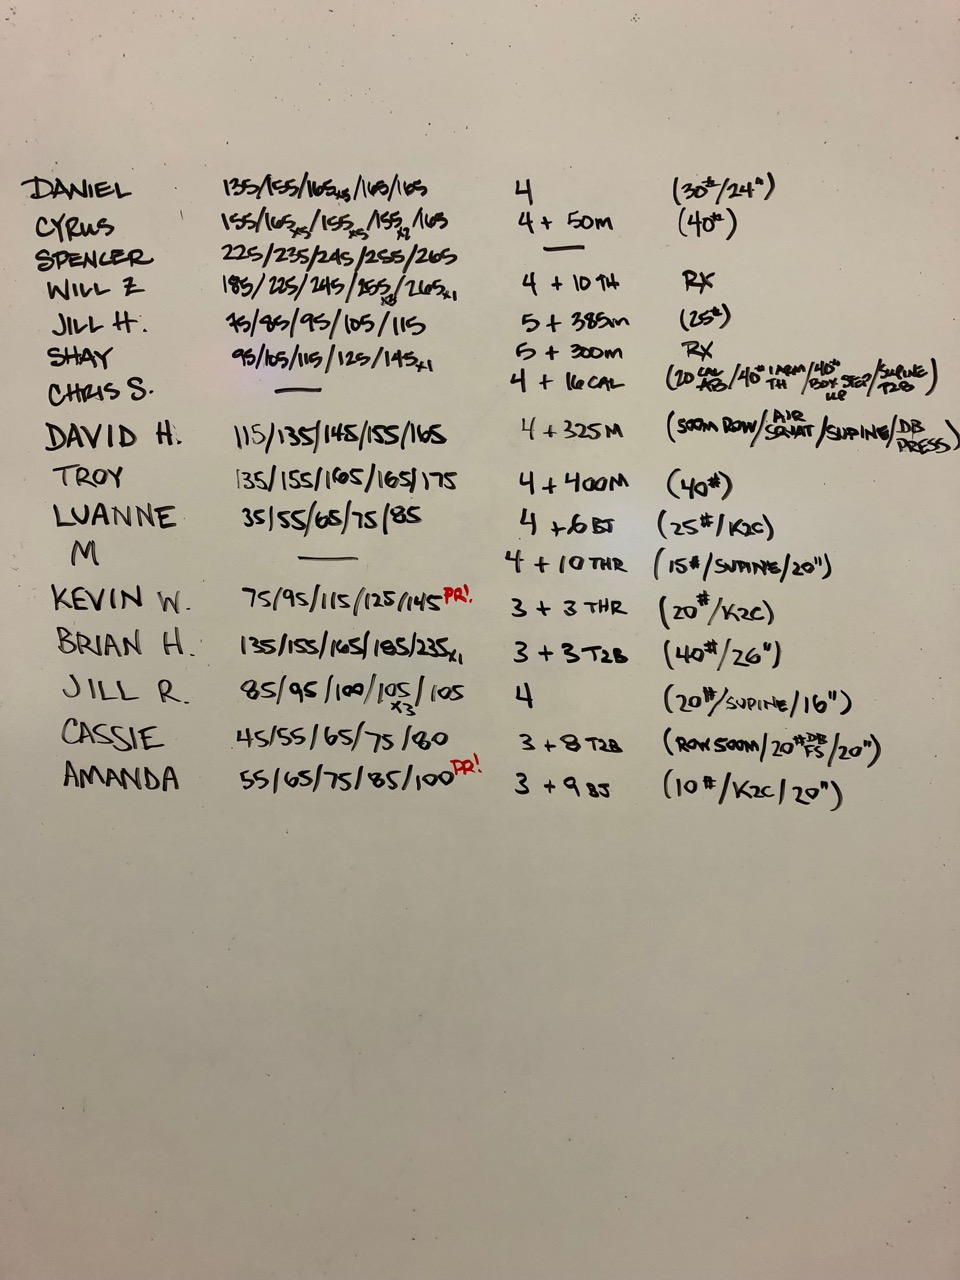 DANIEL 135/155/165x5/165/165 4 (30#/24")
CYRUS 155/165x5/155x5/155x2/165 4 + 50M (40#)
SPENCER 225/235/245/255/265 —
WILL Z 185/225/245/255x3/265x1 4 + 10 TH RX
JILL H. 75/85/95/105/115 5 + 385m (25#)
SHAY 95/105/115/125/145x1 5 + 300m RX
CHRIS S. — 4 + 16 CAL (20 CAL AB/40# 1 ARM TH/40# BOX STEP UP/SUPINE T2B)
DAVID H. 115/135/145/155/165 4 + 325M (500M ROW/AIR SQUAT/SUPINE/DB PRESS)
TROY 135/155/165/165/175 4 + 400M (40#)
LUANNE 35/55/65/75/85 4 + 6 BJ (25#/K2C)
M — 4 + 10 THR (15#/SUPINE/20")
KEVIN W. 75/95/115/125/145 PR! 3 + 3 THR (20#/K2C)
BRIAN H. 135/155/165/185/235x1 3 + 3 T2B (40#/26")
JILL R. 85/95/100/105x3/105 4 (20#/SUPINE/16")
CASSIE 45/55/65/75/80 3 + 8 T2B (ROW 500M/20# DB FS/20")
AMANDA 55/65/75/85/100 PR! 3 + 9 BJ (10#/K2C/20")